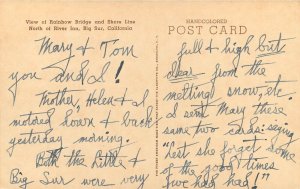 View of Rainbow Bridge and Shore Line
North of River Inn, Big Sur, California
HANDCOLORED
POST CARD
Mary & Tom
you and I!
Mother, Helen & I
motored down & back
yesterday morning.
Both the Little &
Big Sur were very
full & high but
clear from the
melting snow, etc.
I sent Mary these
same two cards: saying
"lest she forget some
of the good times
we had had!"